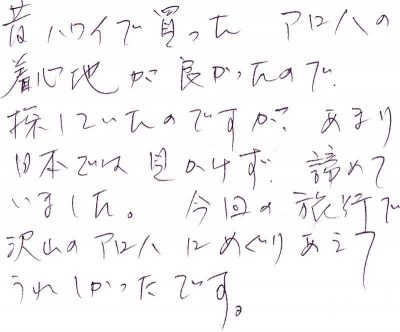 昔ハワイで買った アロハの
着心地が良かったので
探していたのですが、あまり
日本では見かけず 諦めて
いました。 今回の旅行で
沢山のアロハにめぐりあえて
うれしかったです。